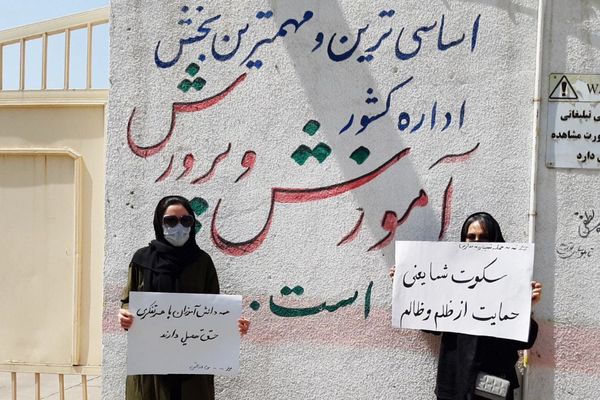 اساسی ترین و مهمترین بخش
اداره کشور
آموزش و پرورش
است.
همه دانش آموزان با هر تفکری
حق تحصیل دارند
سکوت شما یعنی
حمایت از ظلم و ظالم
تبلیغاتی
صورت مشاهده
دارد